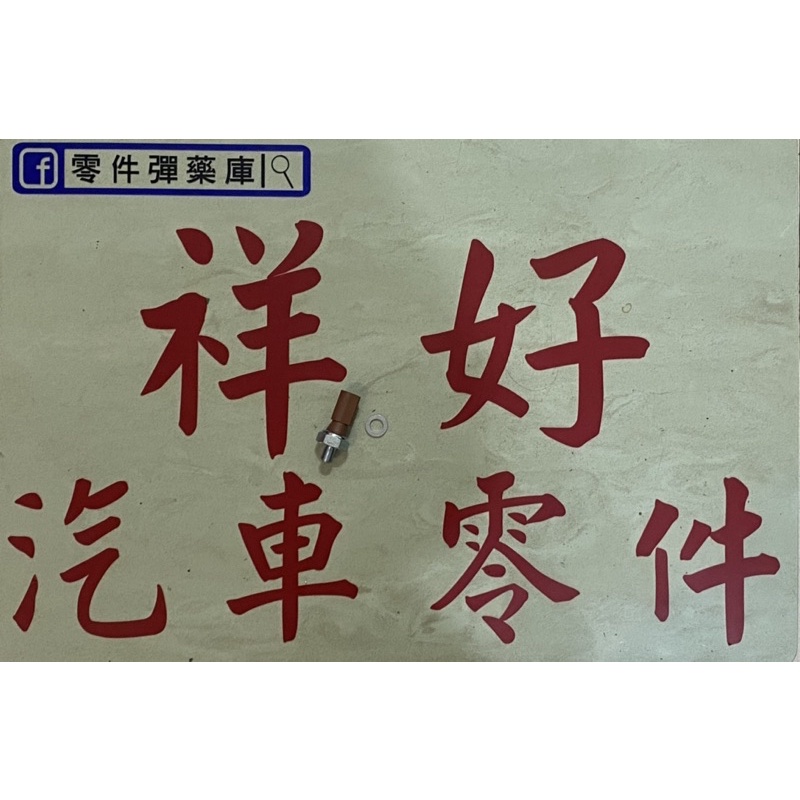 零件彈藥庫
祥好
汽車零件